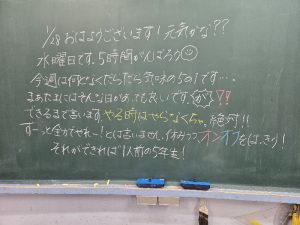 1/28 おはようございます！元気かな??
水曜日です。5時間がんばろう☺
今週は何となくだらだら気味の5の1です…
まあたまにはそんな日があっても良いです。が、!?
できるまで言います。やる時はやらなくちゃ。絶対!!
ずーっと全力でやれー！とは言いません。休みつつオンオフをはっきり！
それができれば1人前の5年生！